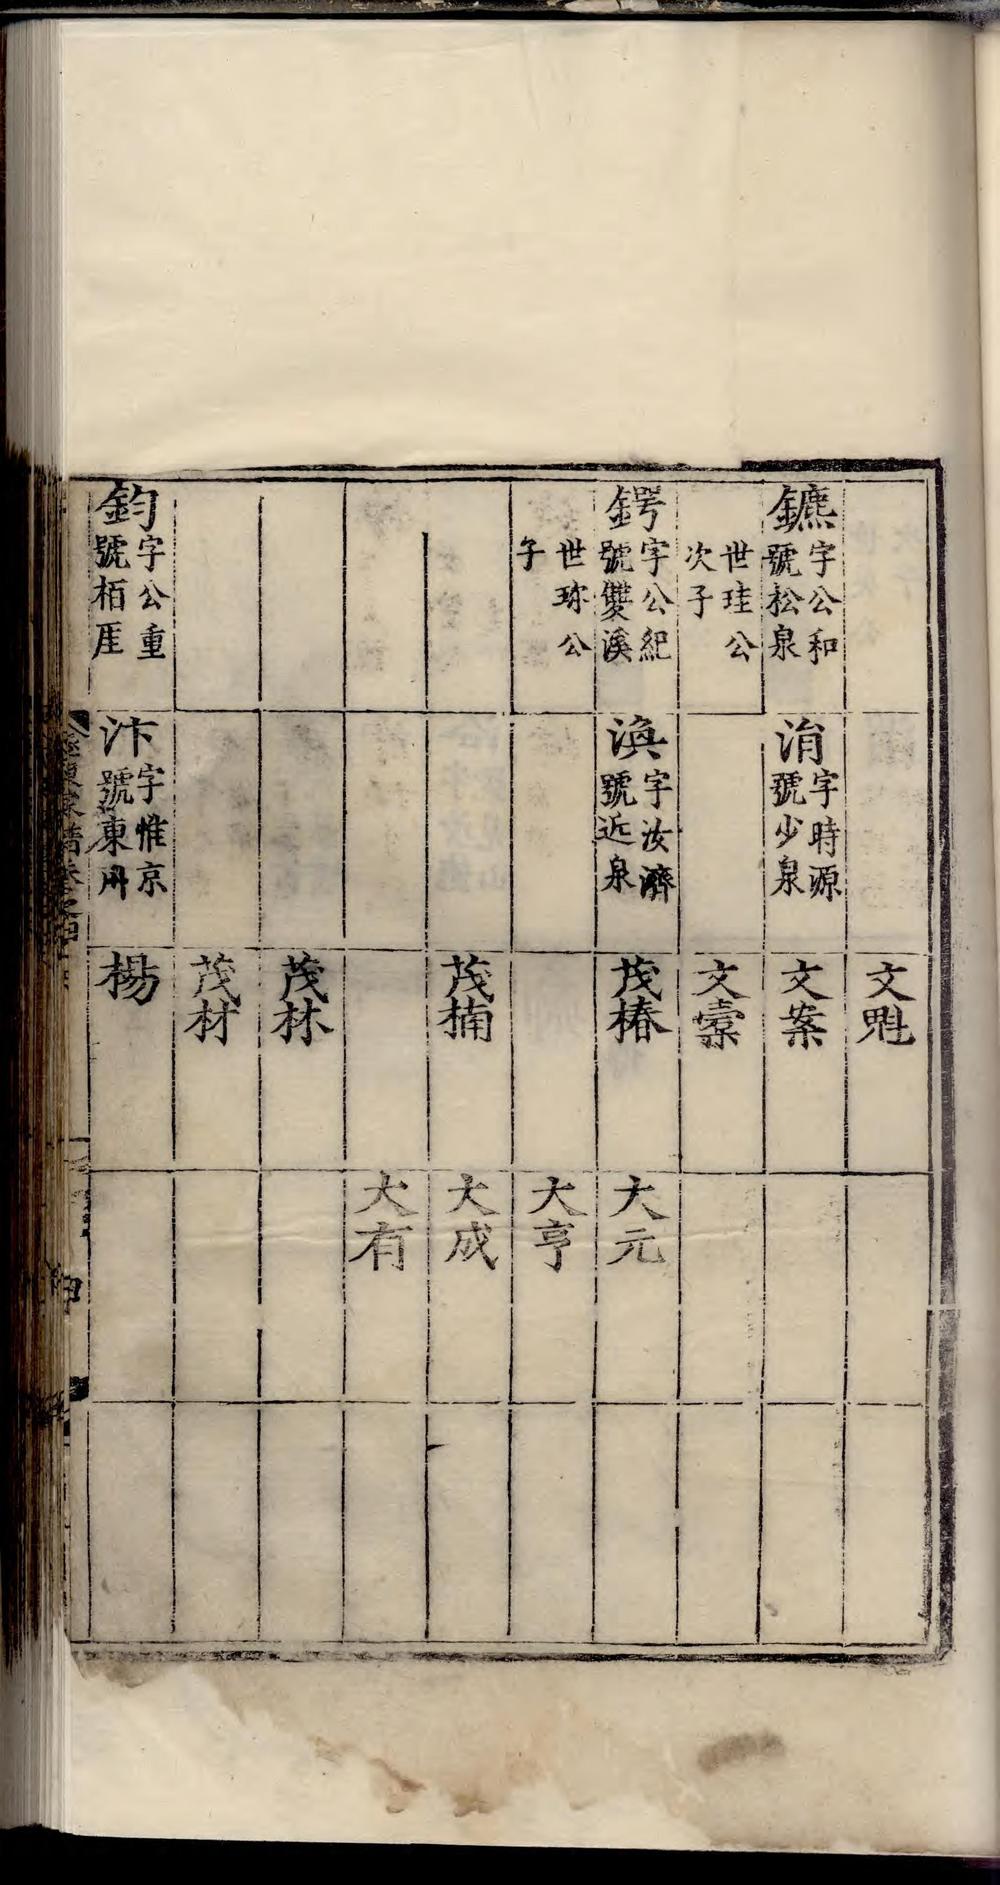 文魁
鑣 字公和
號松泉
淯 字時源
號少泉
文案
世珪公
次子
文橐
鍔 字公紀
號雙溪
渙 字汝濟
號近泉
茂椿
大元
世珎公
子
大亨
茂楠
大成
大有
茂林
茂材
鈞 字公重
號栢厓
汴 字惟京
號東川
楊